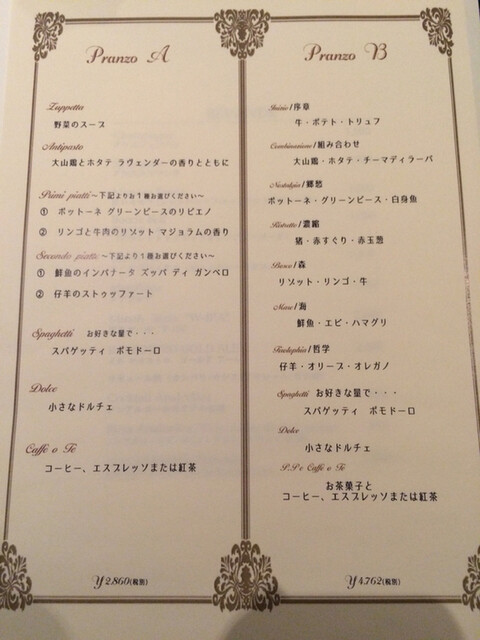 Pranzo A
Zuppetta
野菜のスープ
Antipasto
大山鶏とホタテ ラヴェンダーの香りとともに
Primi piatti ～下記よりお１種お選びください～
① ポットーネ グリーンピースのリピエノ
② リンゴと牛肉のリゾット マジョラムの香り
Secondo piatti ～下記より１種お選びください～
① 鮮魚のインパナータ ズッパ ディ ガンベロ
② 仔羊のストゥッファート
Spaghetti お好きな量で・・・
スパゲッティ ポモドーロ
Dolce
小さなドルチェ
Caffè o Tè
コーヒー、エスプレッソまたは紅茶
¥2,860(税別)
Pranzo B
Inizio/序章
牛・ポテト・トリュフ
Combinazione/組み合わせ
大山鶏・ホタテ・チーマディラーパ
Nostalgia/郷愁
ポットーネ・グリーンピース・白身魚
Ristretto/濃縮
猪・赤すぐり・赤玉葱
Bosco/森
リゾット・リンゴ・牛
Mare/海
鮮魚・エビ・ハマグリ
/哲学
仔羊・オリーブ・オレガノ
Spaghetti お好きな量で・・・
スパゲッティ ポモドーロ
Dolce
小さなドルチェ
P.P e Caffè o Tè
お茶菓子と
コーヒー、エスプレッソまたは紅茶
¥4,762(税別)